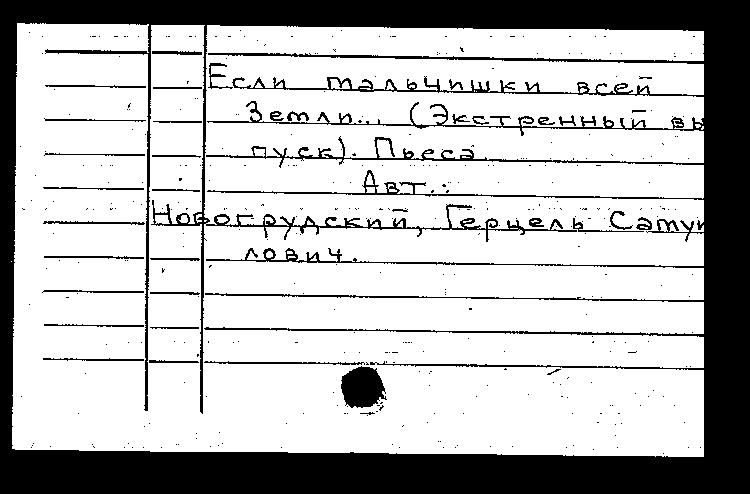 Если мальчишки всей
Земли... (Экстренный вы
пуск). Пьеса
Авт.:
Новогрудский, Герцель Самуи
лович.